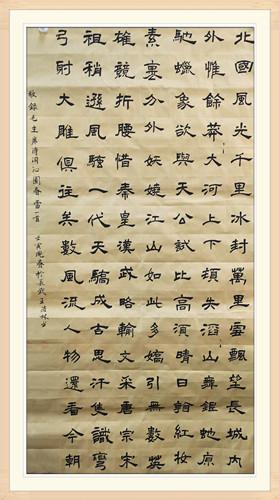 北國風光千里冰封萬里雪飄望長城內
外惟餘莽大河上下頓失滔山舞銀蛇原
馳蠟象欲與天公試比高須晴日看紅妝
素裹分外妖嬈江山如此多嬌引無數英
雄競折腰惜秦皇漢武略輸文采唐宗宋
祖稍遜風騷一代天驕成吉思汗隻識彎
弓射大雕俱往矣數風流人物還看今朝
敬錄毛主席詩詞沁園春雪一首 壬寅晚春於長